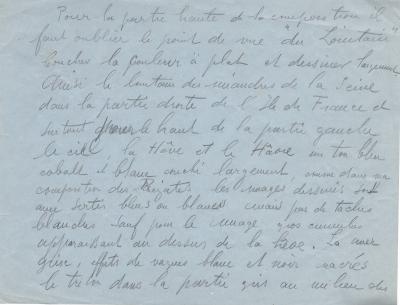 Pour la partie haute de la composition il
faut oublier le point de vue "du Lointain"
Coucher la couleur à plat et dessiner largement
Ainsi le lointain des méandres de la Seine
dans la partie droite de l'Ile de France et
surtout le haut de la partie gauche
le ciel, la Hève et le Hâvre un ton bleu
cobalt et blanc couché largement, comme dans ma
composition des Régates les nuages dessinés
avec bleus ou blancs mais pas de taches
blanches sauf pour le nuage gros cumulus
apparaissant au dessus de la hève. La mer
grise, effets de vagues blanc et noir nacrés
le dans la partie gris au milieu des